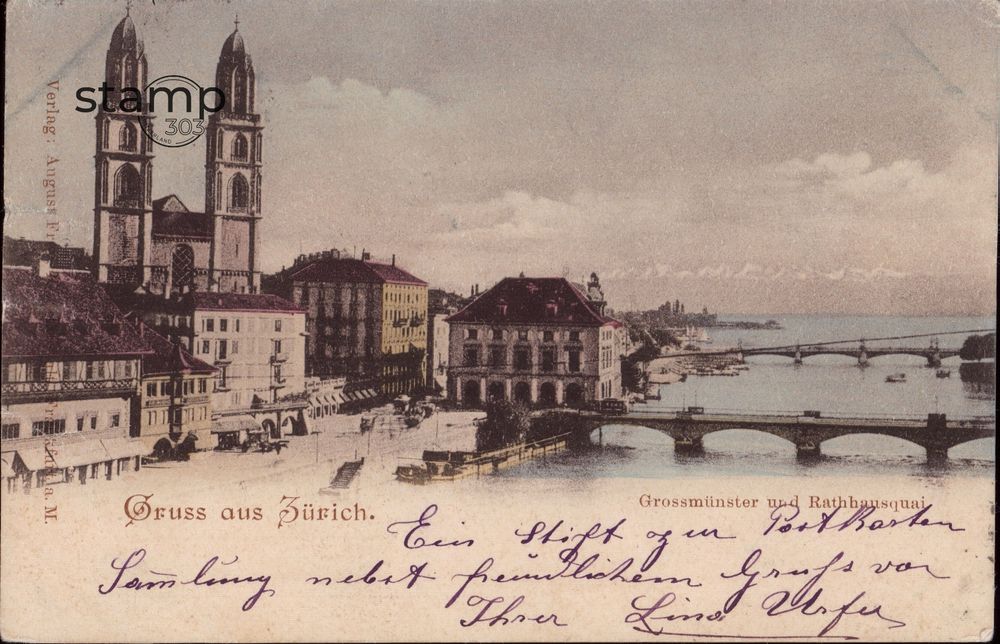 stamp
303
Verlag: August Fr
a. M.
Gruss aus Zürich.
Grossmünster und Rathhausquai.
Ein Stift zur Postkarten
Sam̅lung nebst freundlichem Gruß von
Ihrer Lina